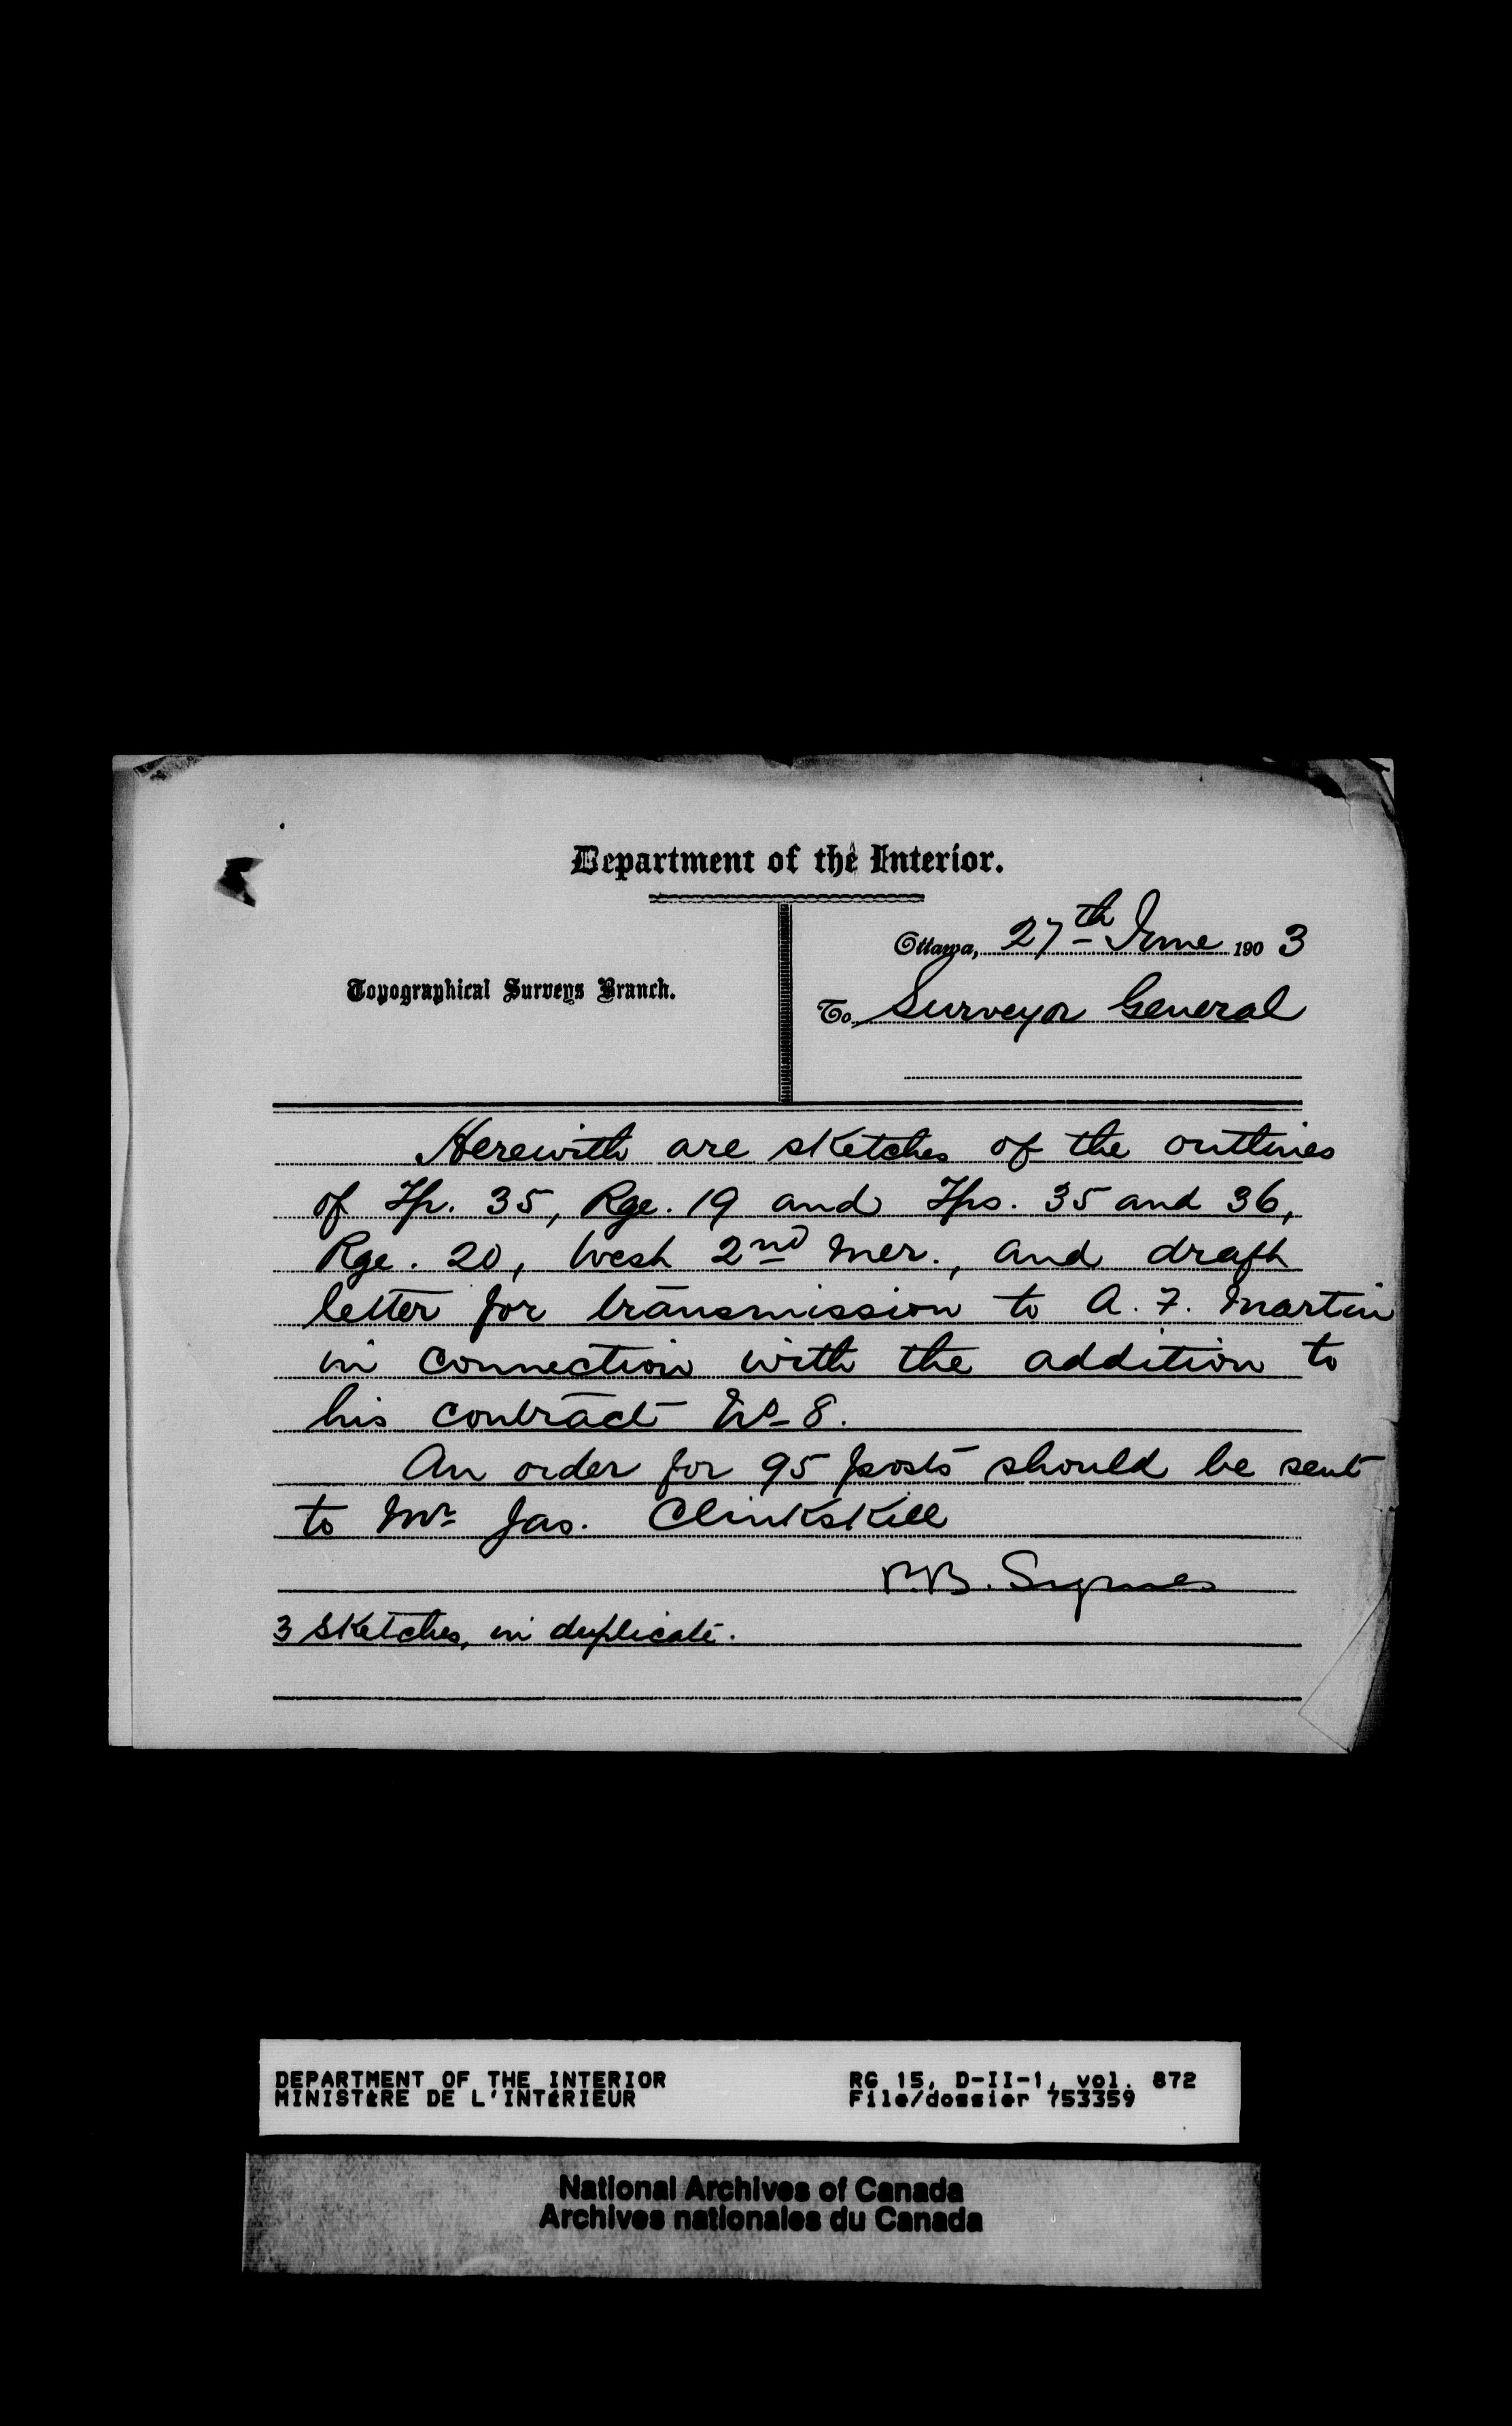 Department of the Interior.
Ottawa, 27th June 1903
Topographical Surveys Branch.
To Surveyor General
Herewith are sketches of the outlines
of Tp. 35, Rge. 19 and Tps. 35 and 36,
Rge. 20, West 2nd Mer., and draft
letter for transmission to A. F. Martin
in connection with the addition to
his contract No 8.
An order for 95 posts should be sent
to Mr Jas. Clinkskill
P.B. Symes
3 sketches, in duplicate.
DEPARTMENT OF THE INTERIOR RG 15, D-II-1, vol. 872
MINISTÈRE DE L'INTÉRIEUR File/dossier 753359
National Archives of Canada
Archives nationales du Canada